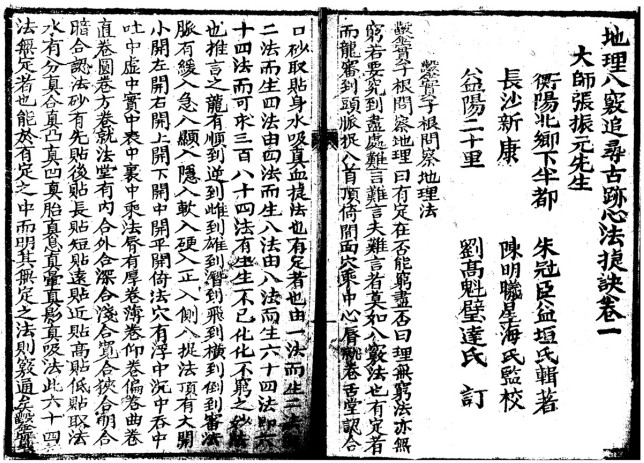 地理八竅追尋古跡心法摸訣卷一
大師張振元先生
衡陽北鄉下半都 朱冠臣益垣氏輯著
長沙新康 陳明曦星海氏監校
益陽二十里 劉高魁璧達氏 訂
鑿鑿子根問察地理法
鑿鑿子根問察地理曰有定在否能窮盡否曰理無窮法亦無
窮若要究到盡處難言夫難言者莫如八竅法也有定者
而龍審到頭脈捉入首頂倚間面穴乘中心唇 卷舌堂認合
口砂取貼身水吸真血提法也有定者也由一法而生二
二法而生四法由四法而生八法由八法而生六十四法即六
十四法而可求三百八十四法有生生不已化化不窮之妙法
也推言之龍有順到逆到雌到雄到潛到飛到橫到倒到審法
脈有緩入急入顯入隱入軟入硬入正入側入捉法頂有大開
小開左開右開上開下開中開平開倚法穴有浮中沉中吞中
吐中虛中實中表中裏中乘法唇有厚卷薄卷仰卷偏卷曲卷
直卷圓卷方卷就法堂有內合外合深合淺合寬合狹合明合
暗合認法砂有先貼後貼長貼短貼遠貼近貼高貼低貼取法
水有分真合真凸真凹真胎真息真暈真影真吸法此六十四
法無定者也能於有定之中而明其無定之法則竅通矣鑿鑿